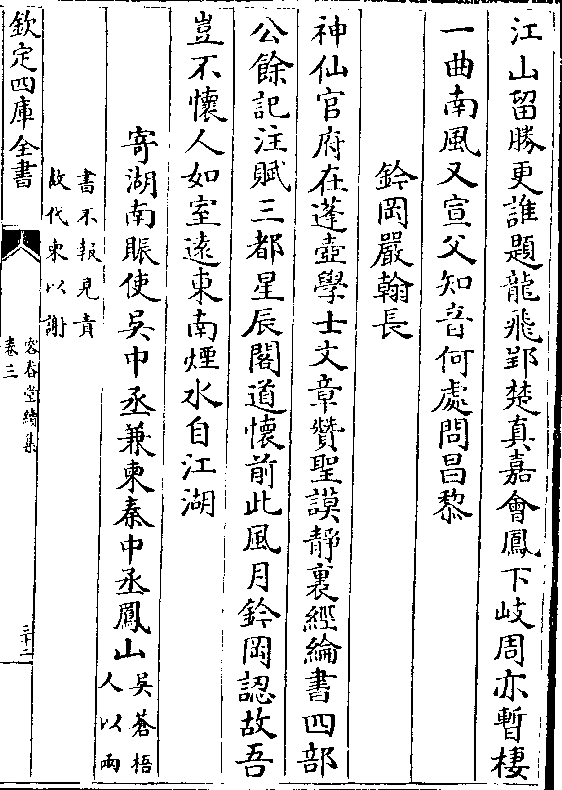 江山留勝更誰題龍飛郢楚真嘉會鳳下岐周亦暫棲
一曲南風又宣父知音何處問昌黎
鈐岡嚴翰長
神仙官府在蓬壺學士文章贊聖謨靜裏經綸書四部
公餘記注賦三都星辰閣道懷前此風月鈐岡認故吾
豈不懷人如室遠東南煙水自江湖
寄湖南賑使吳中丞兼柬秦中丞鳳山吳蒼梧人以兩
書不報見責故代柬以謝
欽定四庫全書
容春堂續集
卷三
三十二